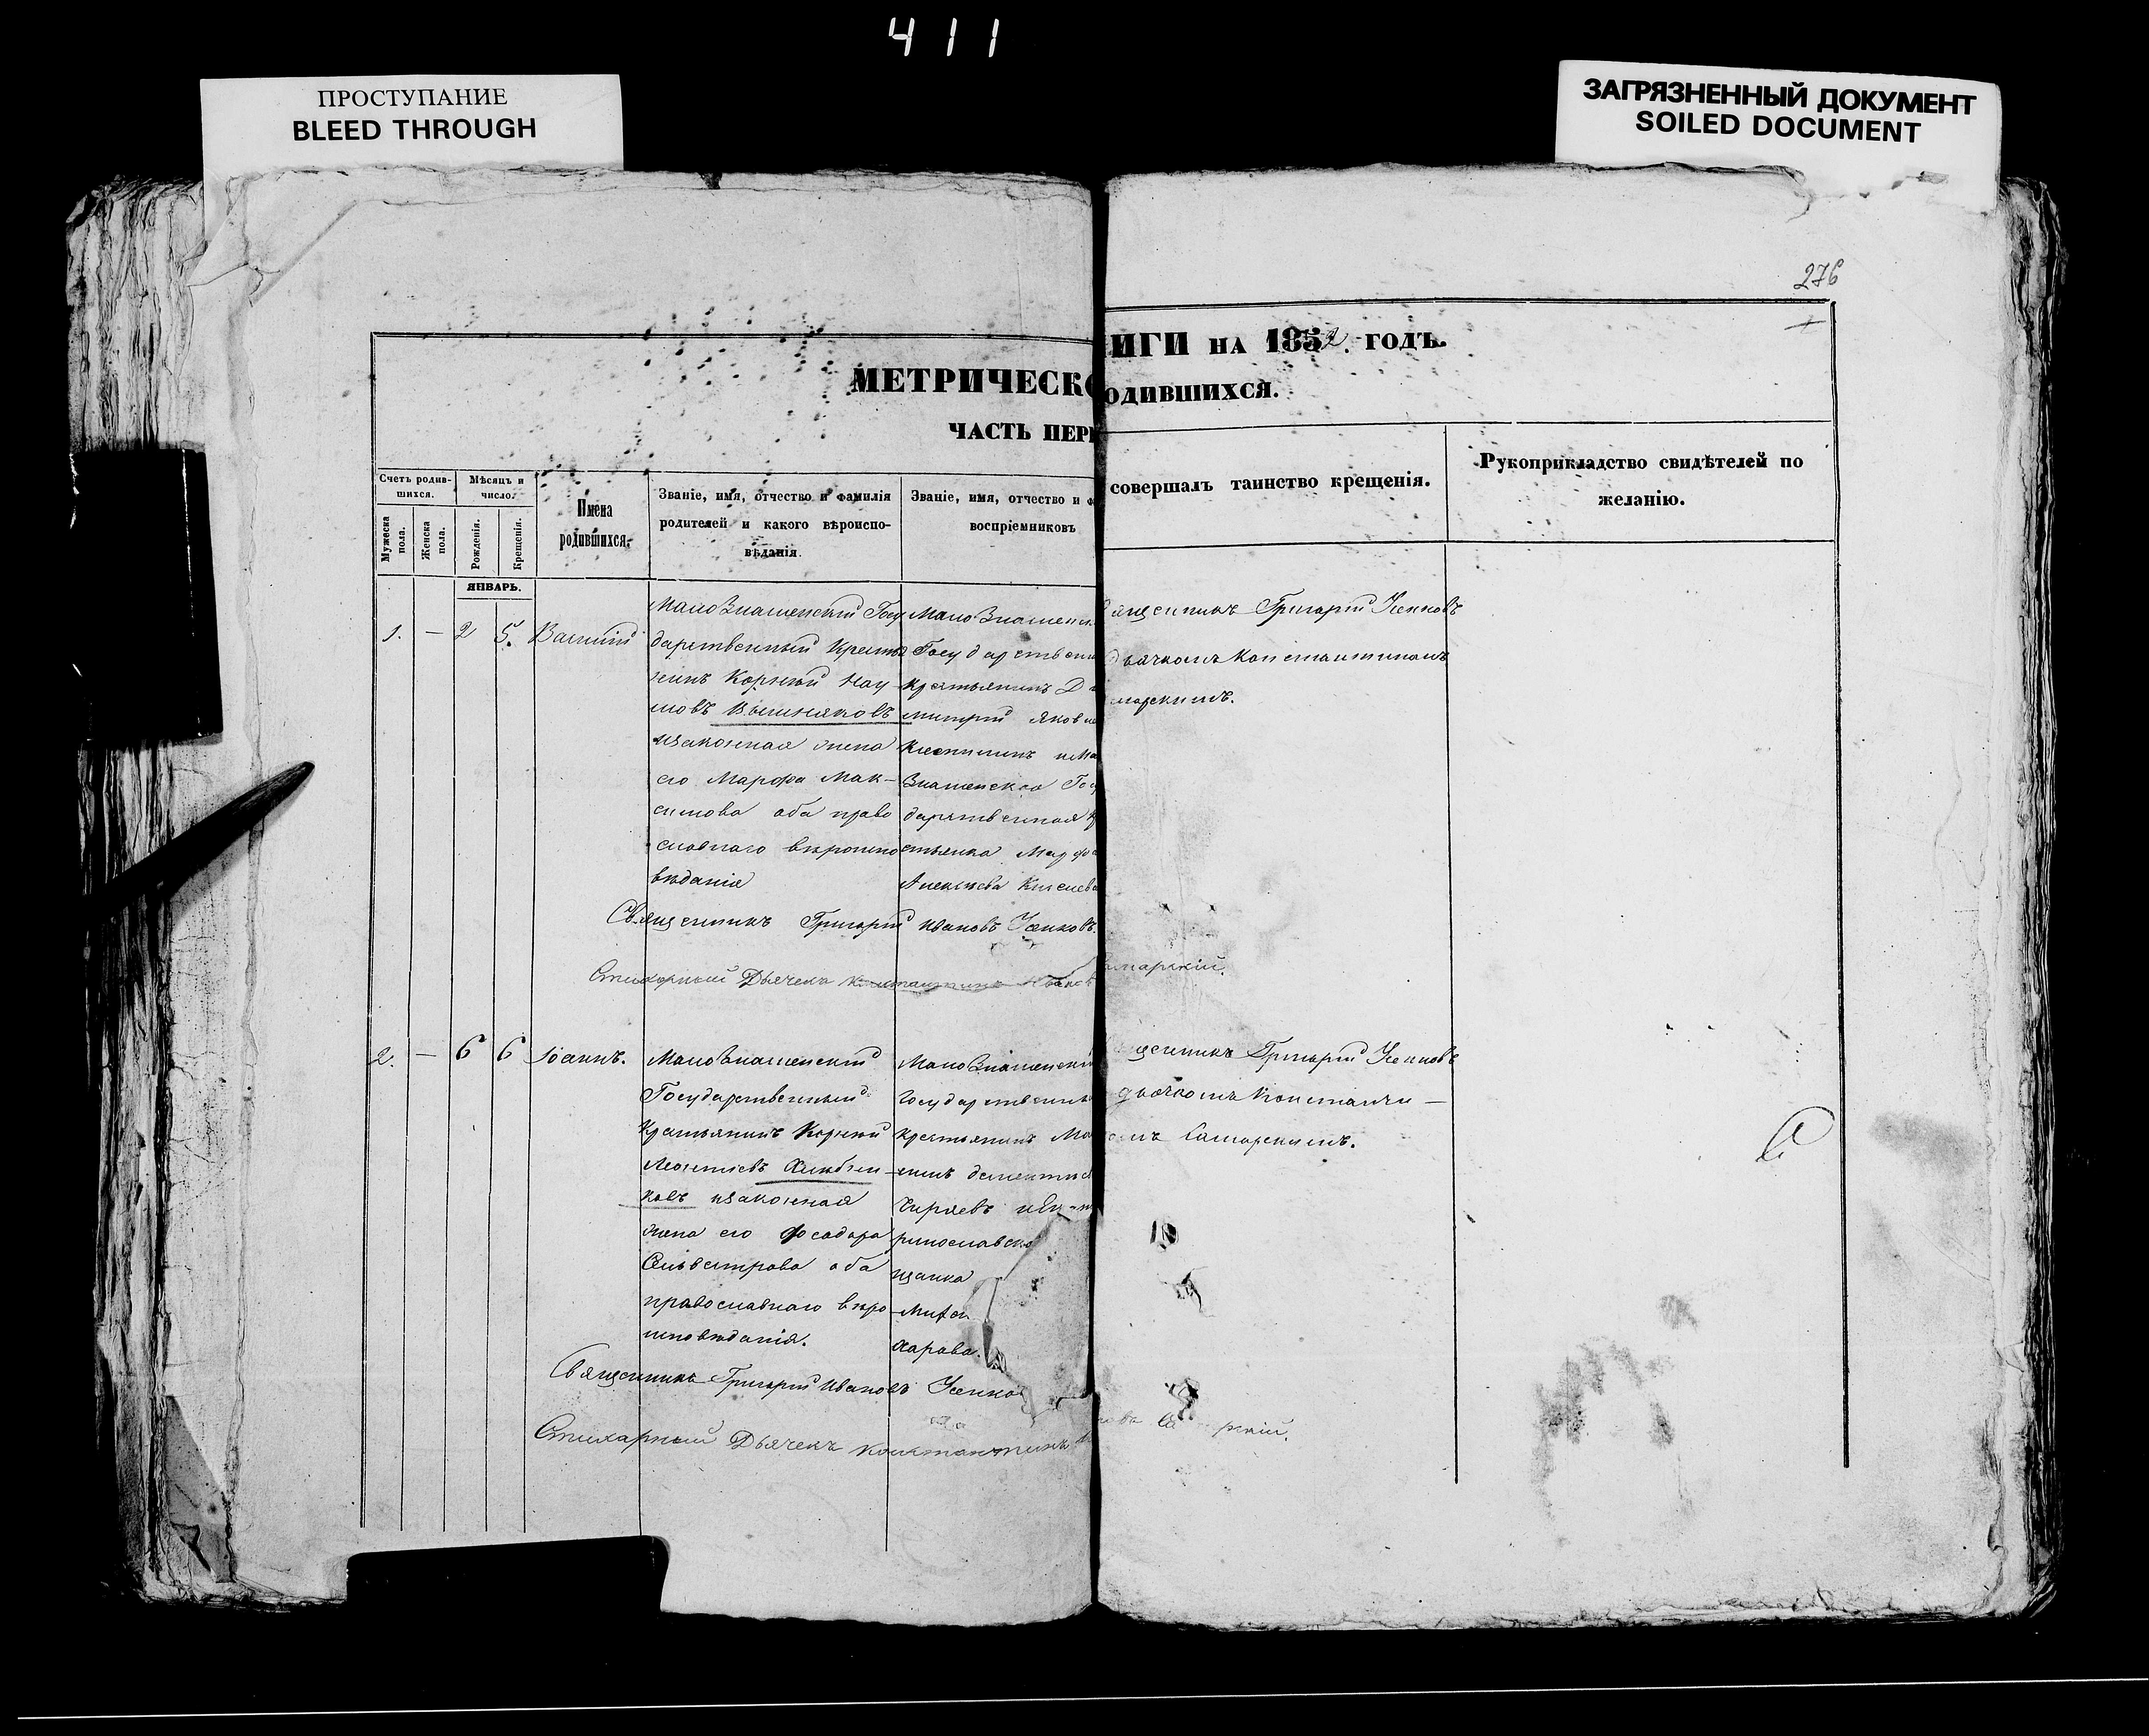 411
ПРОСТУПАНИЕ
BLEED THROUGH
ЗАГРЯЗНЕННЫЙ ДОКУМЕНТ
SOILED DOCUMENT
276
МЕТРИЧЕСКО
ИГИ НА 1852. ГОДЪ.
ЧАСТЬ ПЕРВ
ОДИВШИХСЯ.
Счетъ родив-
шихся.
Мужеска
пола.
Женска
пола.
Мѣсяцъ и
число.
Рожденія.
Крещенія.
Имена
родившихся.
Званіе, имя, отчество и фамилія
родителей и какого вѣроиспо-
вѣданія.
Званіе, имя, отчество и ф
воспріемниковъ
совершалъ таинство крещенія.
Рукоприкладство свидѣтелей по
желанію.
ЯНВАРЬ.
1. — 2 5.
МалоЗнаменскій Госу
дарственный Кресть
янинъ Корній Нау
мовъ
изаконная жена
его Марфа Мак-
симова оба право
славнаго вѣроиспо
вѣданія
МалоЗнаменск
Государственн
крестьянинъ Д
митрій Яковл
иМа
Знаменская Госу
дарственная кр
стьянка Марфа
Алексѣева Киселева
ященникъ Григорій Усенковъ
дьячкомъ Константиномъ
марскимъ.
Священникъ Григорій Ивановъ Усенковъ.
Стихарный Дьячекъ Константинъ Иванов
марскій.
2. — 6 6 Іоаннъ.
МалоЗнаменскій
Государственный
Крестьянинъ Корній
Леонтіевъ
ковъ изаконная
жена его Феодора
Сильвестрова оба
православнаго вѣро
исповѣданія.
МалоЗнаменскій
Государственны
крестьянинъ Ма
симъ Дементіе
Чиряевъ
ринославска
щанка
харова.
щенникъ Григорій Усенковъ
дьячкомъ Константи—
омъ Самарскимъ.
Священникъ Григорій Ивановъ Усенко
Стихарный Дьячекъ Константинъ И
новъ Са рскій.